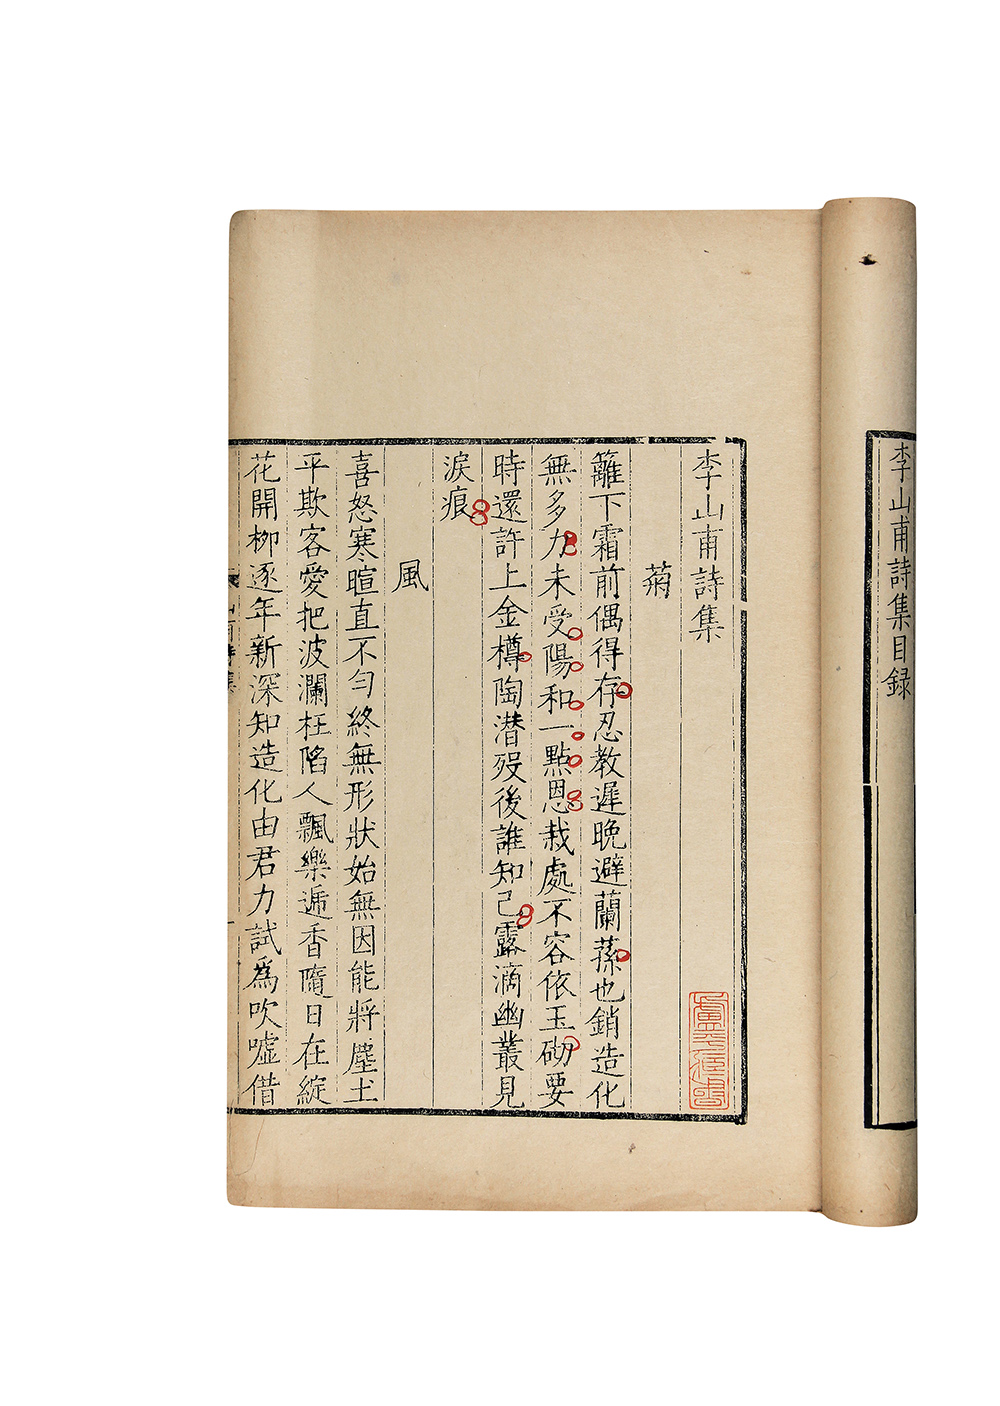 李山甫詩集目録
李山甫詩集
菊
籬下霜前偶得存忍教遲晚避蘭蓀也銷造化
無多力未受陽和一點恩栽處不容依玉砌要
時還許上金樽陶潜歿後誰知己露滴幽叢見
淚痕
風
喜怒寒暄直不勻終無形狀始無因能將塵土
平欺客愛把波瀾枉陷人飄樂遞香隨日在綻
花開柳逐年新深知造化由君力試爲吹噓借